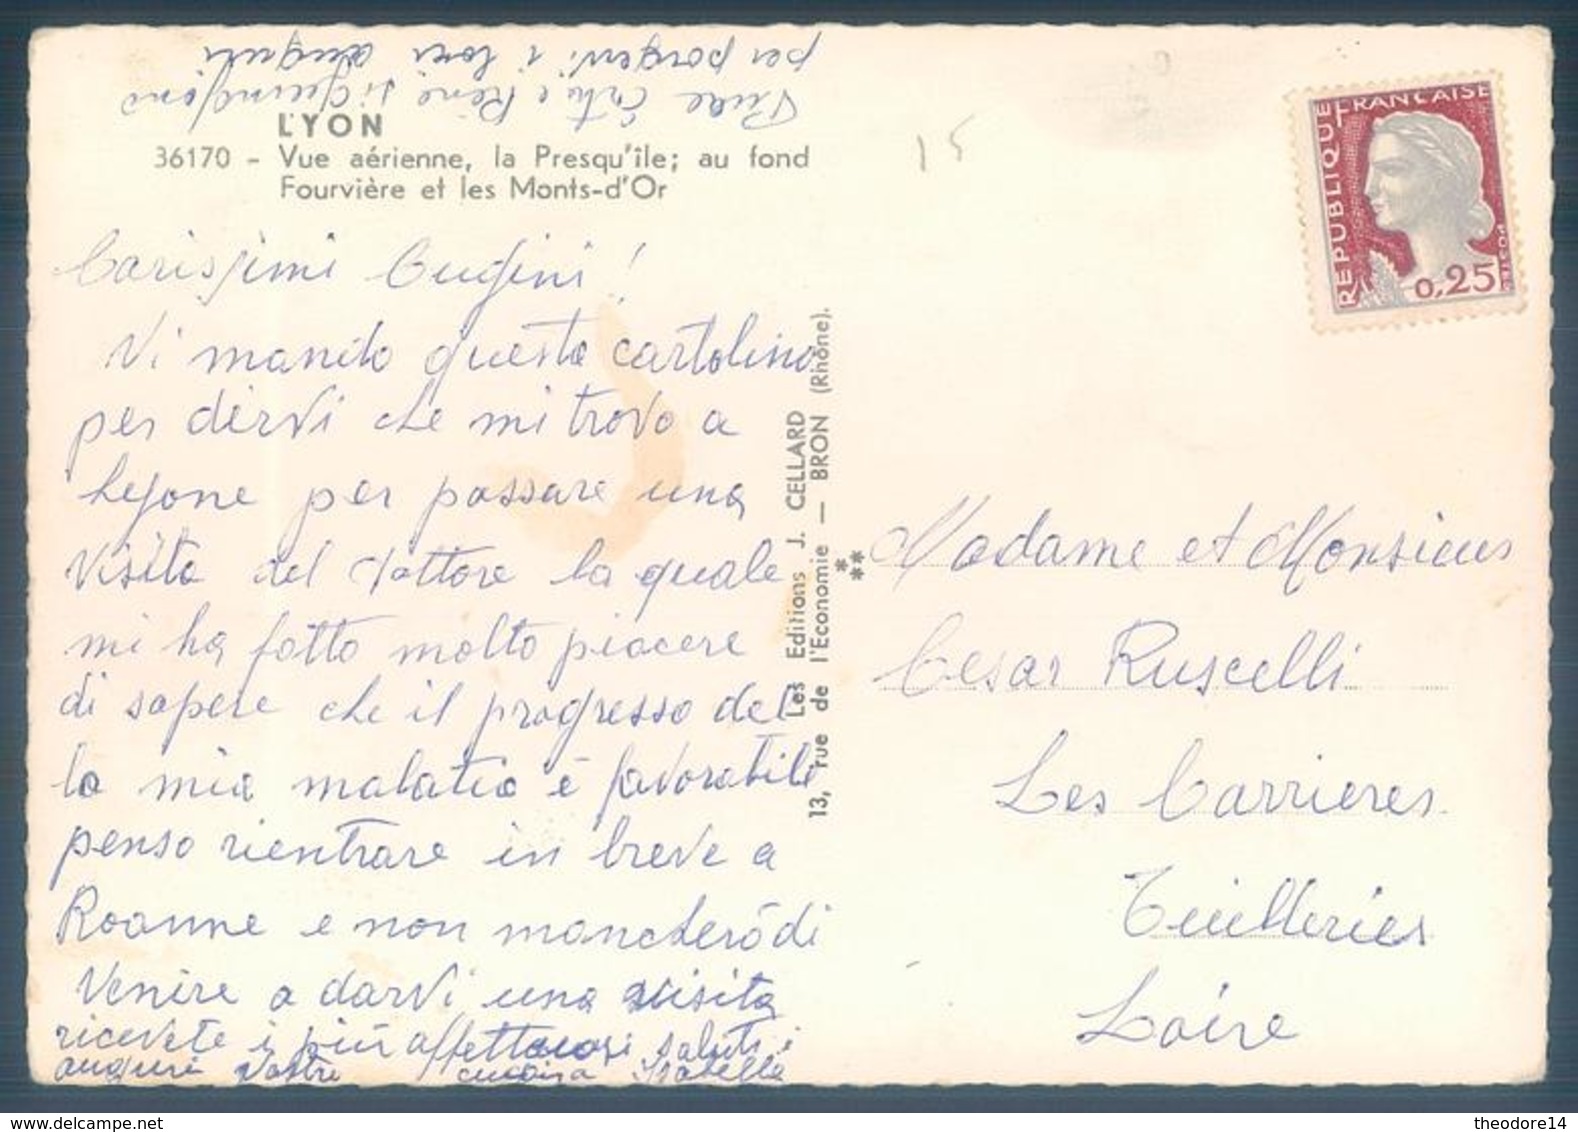 per porgervi i loro auguri
LYON
36170 - Vue aérienne, la Presqu'île; au fond
Fourvière et les Monts-d'Or
Carissimi Cugini!
Vi mando questa cartolina
per dirvi che mi trovo a
Lyone per passare una
visita del dottore la quale
mi ha fatto molto piacere
di sapere che il progresso del
la mia malatia è favorabile
penso rientrare in breve a
Roanne e non mancherò di
venire a darvi una visita
ricevete i più affettuosi saluti e
auguri vostra cugina Isabella
Les Editions J. CELLARD
13, rue de l'Economie — BRON (Rhône).
15
REPUBLIQUE FRANÇAISE
0,25
POSTES
DECARIS
Madame et Monsieur
Cesar Ruscelli
Les Carrieres
Tuilleries
Loire
theodore14